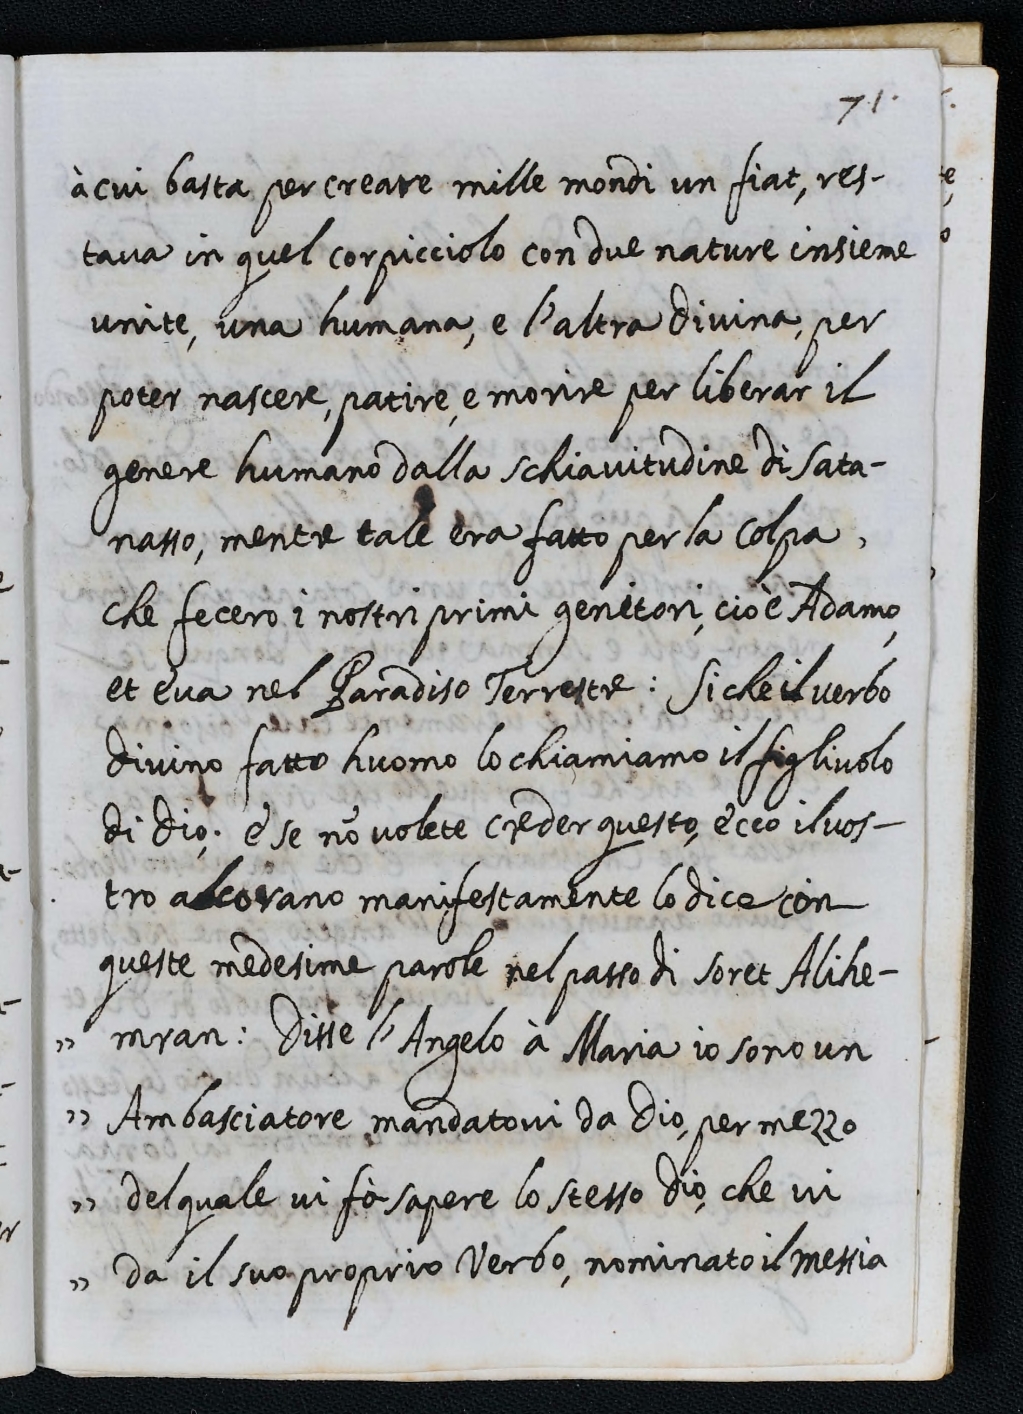 71.
à cui basta per creare mille mondi un fiat, res-
tava in quel corpicciolo con due nature insieme
unite, una humana, e l'altra divina, per
poter nascere, patire, e morire per liberar il
genere humano dalla schiavitudine di Sata-
nasso, mentre tale era fatto per la colpa,
che fecero i nostri primi genitori, cioè Adamo,
et eva nel Paradiso Terrestre: Si che il verbo
divino fatto huomo lo chiamiamo il figlivolo
di Dio; e se nõ volete creder questo, ecco il vos-
tro alcorano manifestamente lo dice con
queste medesime parole nel passo di soret Alihe-
" mran: Disse l'Angelo à Maria io sono un
" Ambasciatore mandatovi da Dio, per mezzo
" del quale vi fò sapere lo stesso Dio, che vi
" da il suo proprio Verbo, nominato il messia